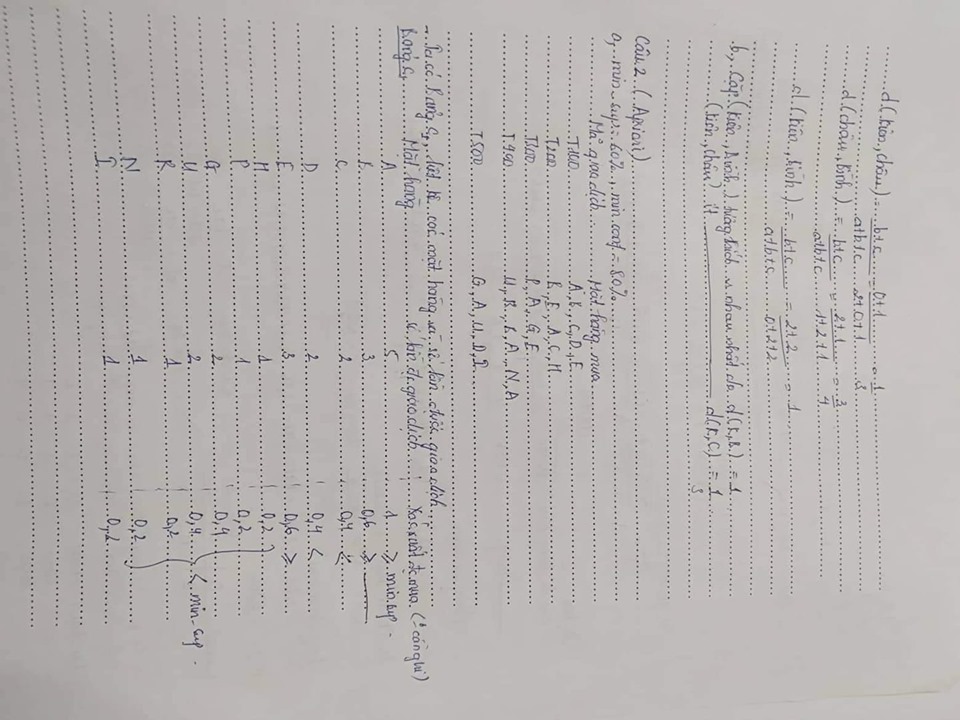 d(Kiên, Châu) = b+c / a+b+c = 0+1 / 2+0+1 = 1/3
d(Châu, Bình) = b+c / a+b+c = 2+1 / 1+2+1 = 3/4
d(Kiên, Bình) = b+c / a+b+c = 2+2 / 0+2+2 = 1
b, Cặp (Kiên, Bình) nhau nhất do d(K,B) = 1
(Kiên, Châu) ít d(K,C) = 1/3
Câu 2 (Apriori)
a, min-sup = 60%, min conf = 80%
Mã giao dịch Mặt hàng mua
T100 A, B, C, D, E
T200 B, E, A, C, H
T300 P, A, G, E
T400 U, R, B, A, N, A
T500 G, A, U, D, I
- Ta có Bảng C1, liệt kê các mặt hàng và số lần được giao dịch
Bảng C1 Mặt hàng số lần đc giao dịch Xác xuất đc mua
A 5 1 ≥ min sup
B 3 0,6 ≥
C 2 0,4 <
D 2 0,4 <
E 3 0,6 ≥
H 1 0,2
P 1 0,2
G 2 0,4
U 2 0,4 < min-sup
R 1 0,2
N 1 0,2
I 1 0,2